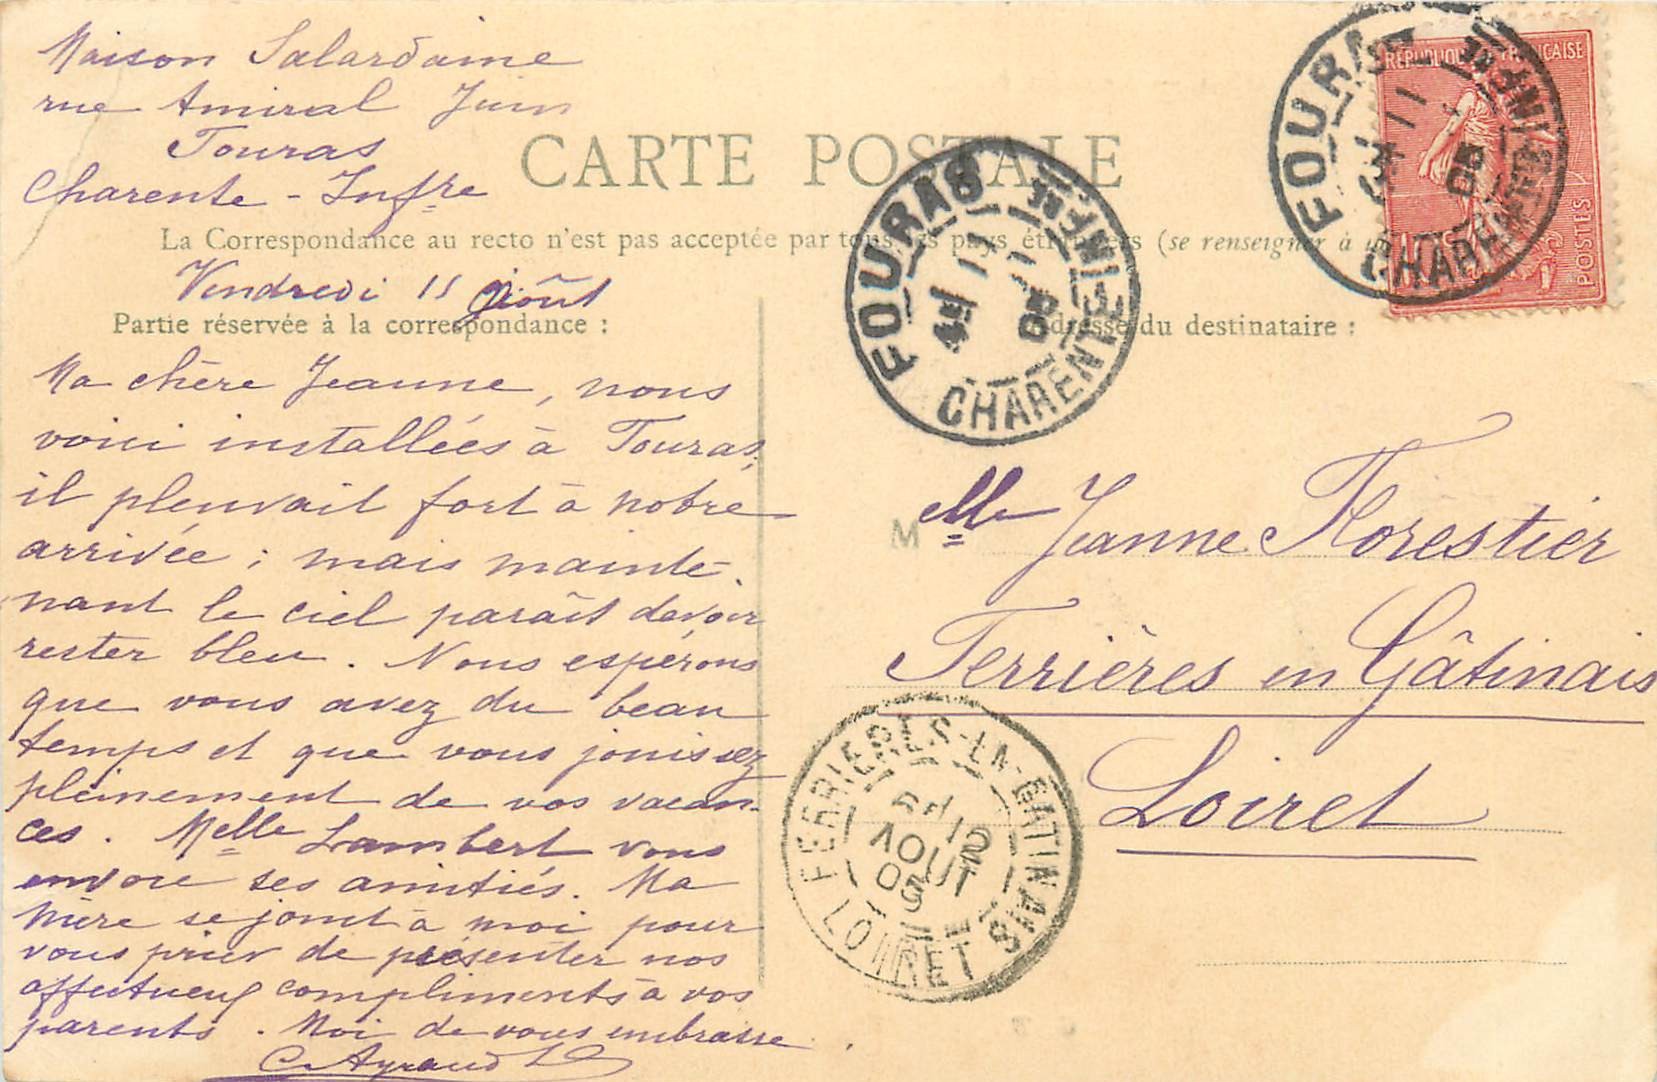 Maison Salardaine
rue Amiral Juin
Fouras
Charente - Infre
CARTE POSTALE
La Correspondance au recto n'est pas acceptée par tous les pays étrangers (se renseigner à
Vendredi 11 Août
Partie réservée à la correspondance :
Adresse du destinataire :
Ma chère Jeanne, nous
voici installées à Fouras,
il pleuvait fort à notre
arrivée ; mais mainte-
nant le ciel paraît devoir
rester bleu. Nous espérons
que vous avez du beau
temps et que vous jouissez
pleinement de vos vacan-
ces. Melle Lambert vous
envoie ses amitiés. Ma
Mère se joint à moi pour
vous prier de présenter nos
affectueux compliments à vos
parents. Moi de vous embrasse.
C. Ayraud
M elle Jeanne Forestier
Ferrières en Gâtinais
Loiret
FOURAS
11
05
CHARENTE INFRE
RÉPUBLIQUE FRANÇAISE
POSTES
FOURAS
11
05
CHARENTE INFRE
FERRIERES-EN-GATINAIS
12
AOUT
05
LOIRET